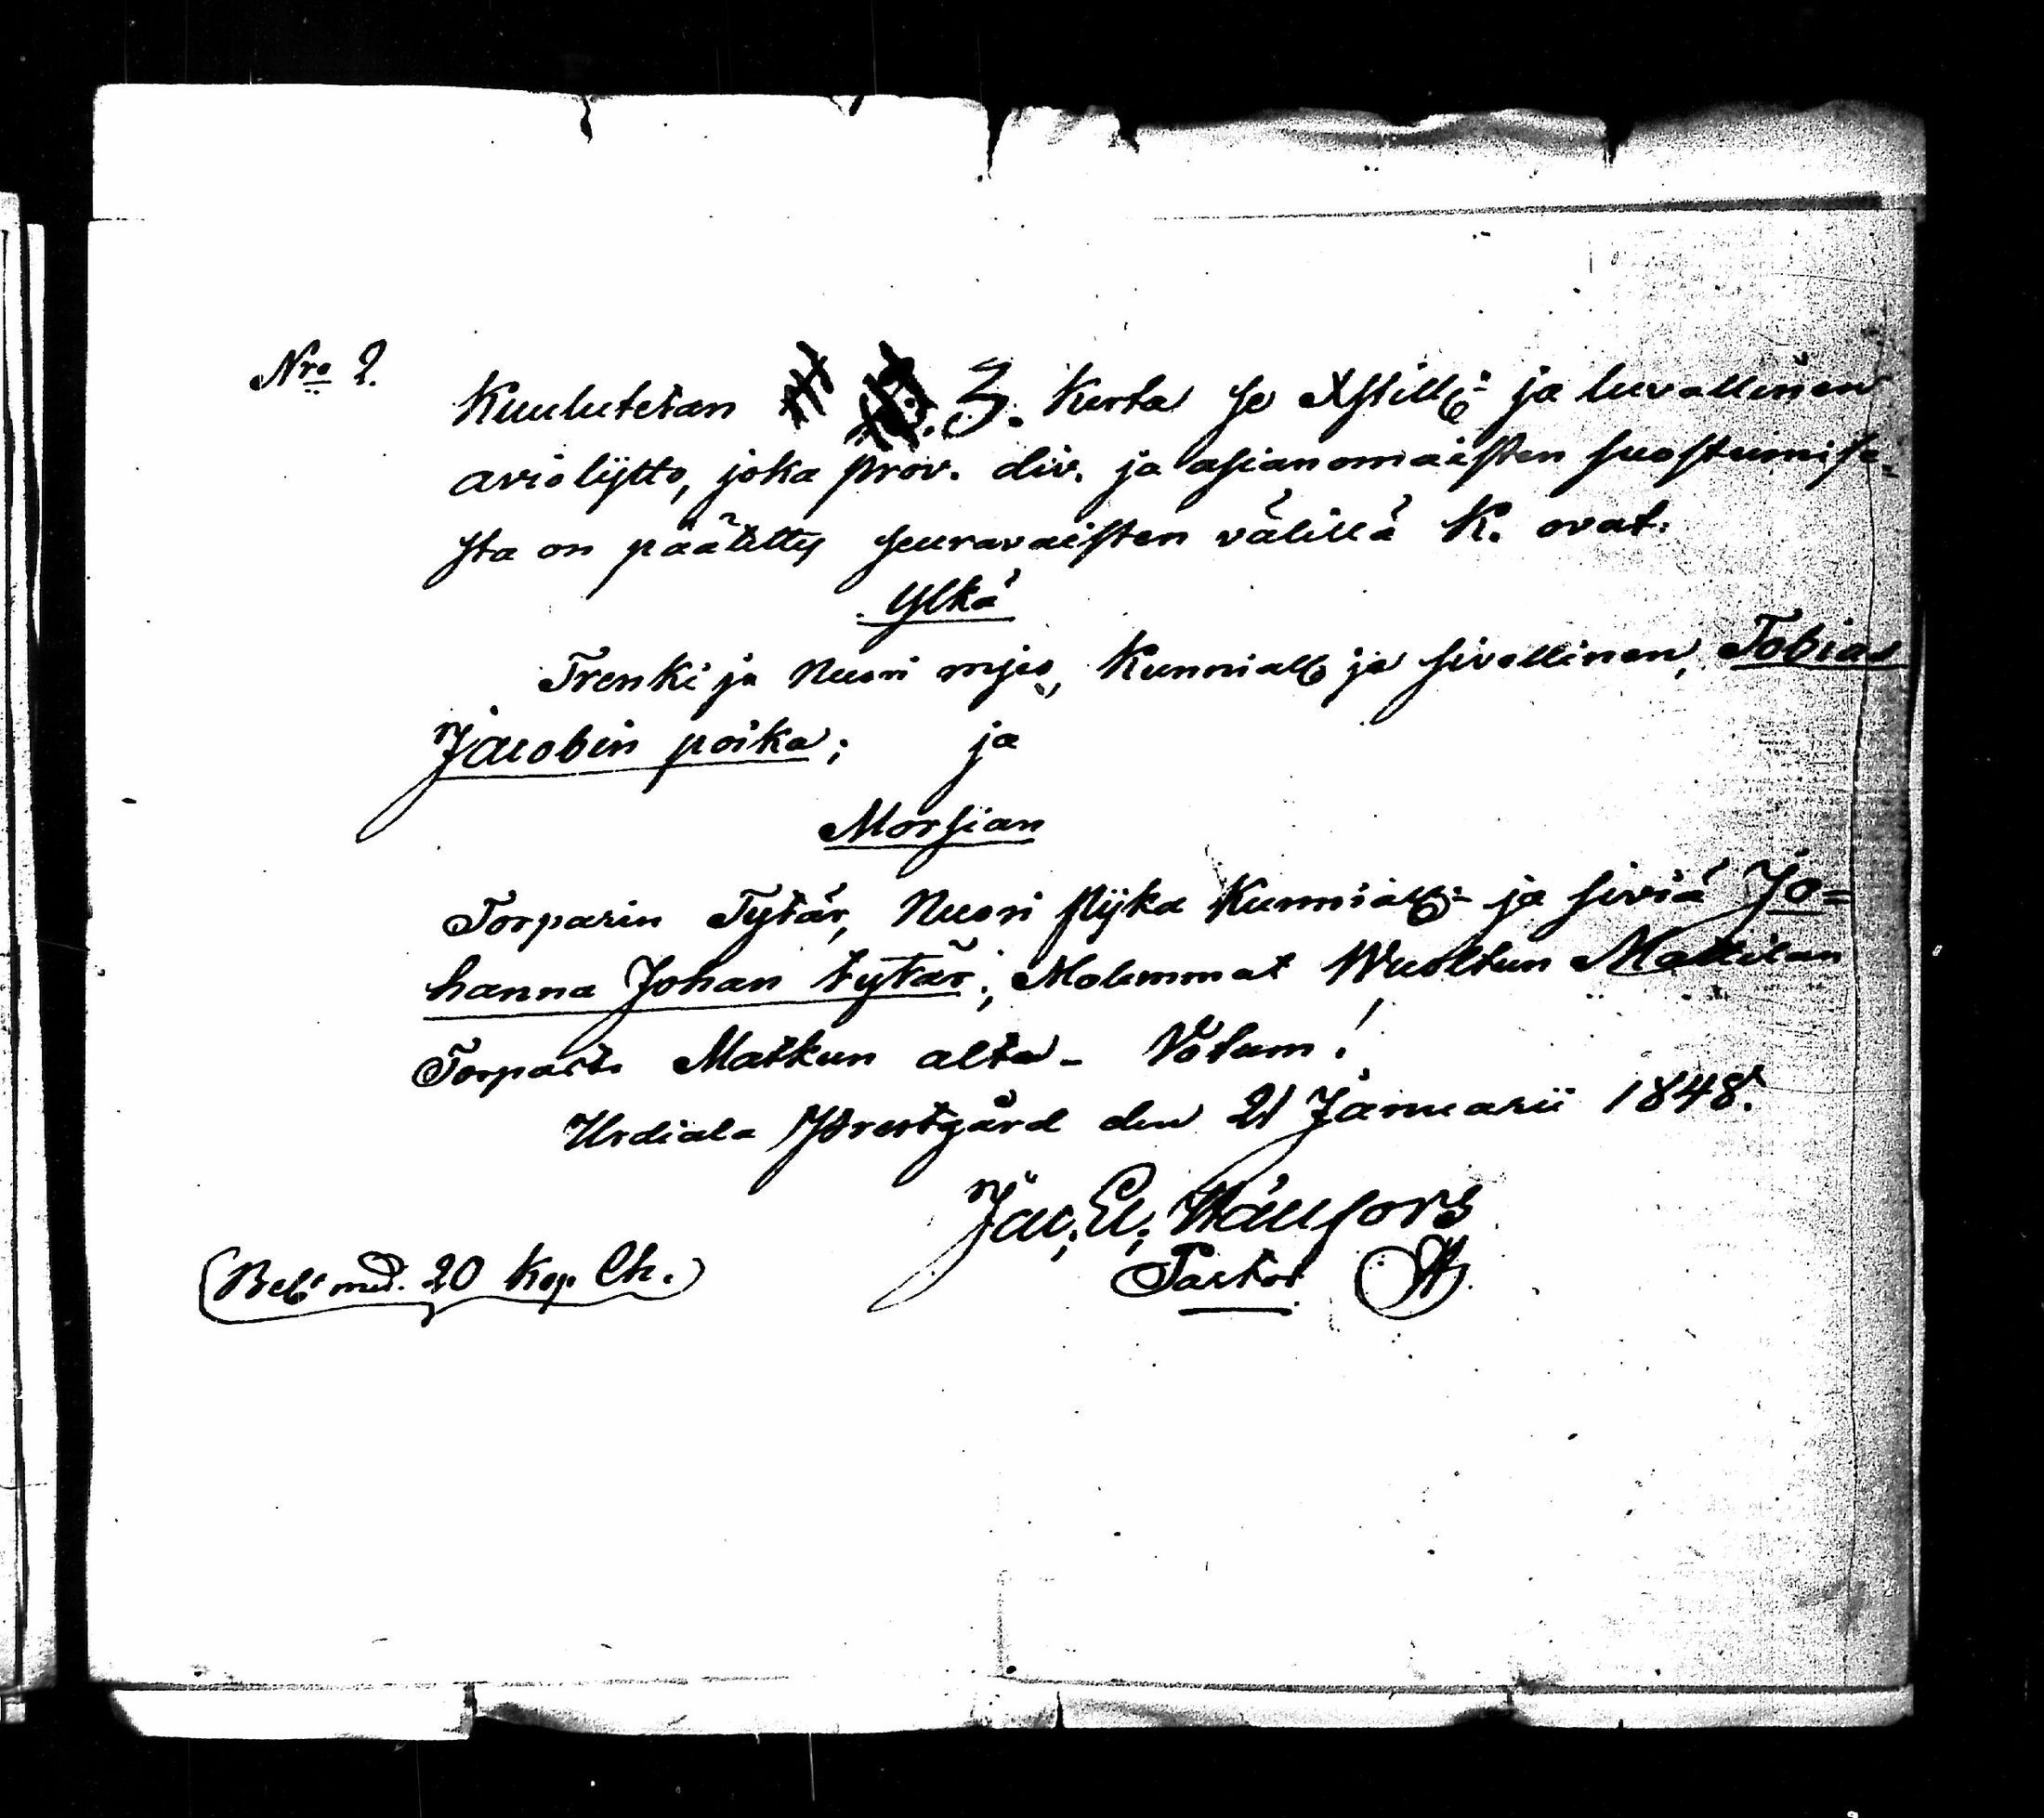 Nro 2.
Kuulutetan 3. Kerta se Xstill:n ja luvallinen
aviolijtto, joka prov. div. ja asianomaisten suostumise-
sta on päätetty seuravaisten välillä K. ovat:
Ylkä
Trenki ja Nuori mjes, Kunniall: ja sivellinen, Tobias
Jacobin poika; ja
Morsian
Torparin Tytär, Nuori pijka Kunniall:n ja siviä Jo=
hanna Johan tytär; Molemmat Wuoltun Mattilan
Torpast Matkun alta - Votum!
Urdiala Prestgård den 21 Januarii 1848.
Jac; El;
Pastor
(Bel: med. 20 Kop. Ch.)